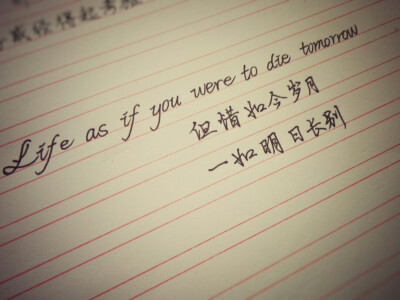 经得起考验
Life as if you were to die tomorrow
但惜如今岁月
一如明日长别